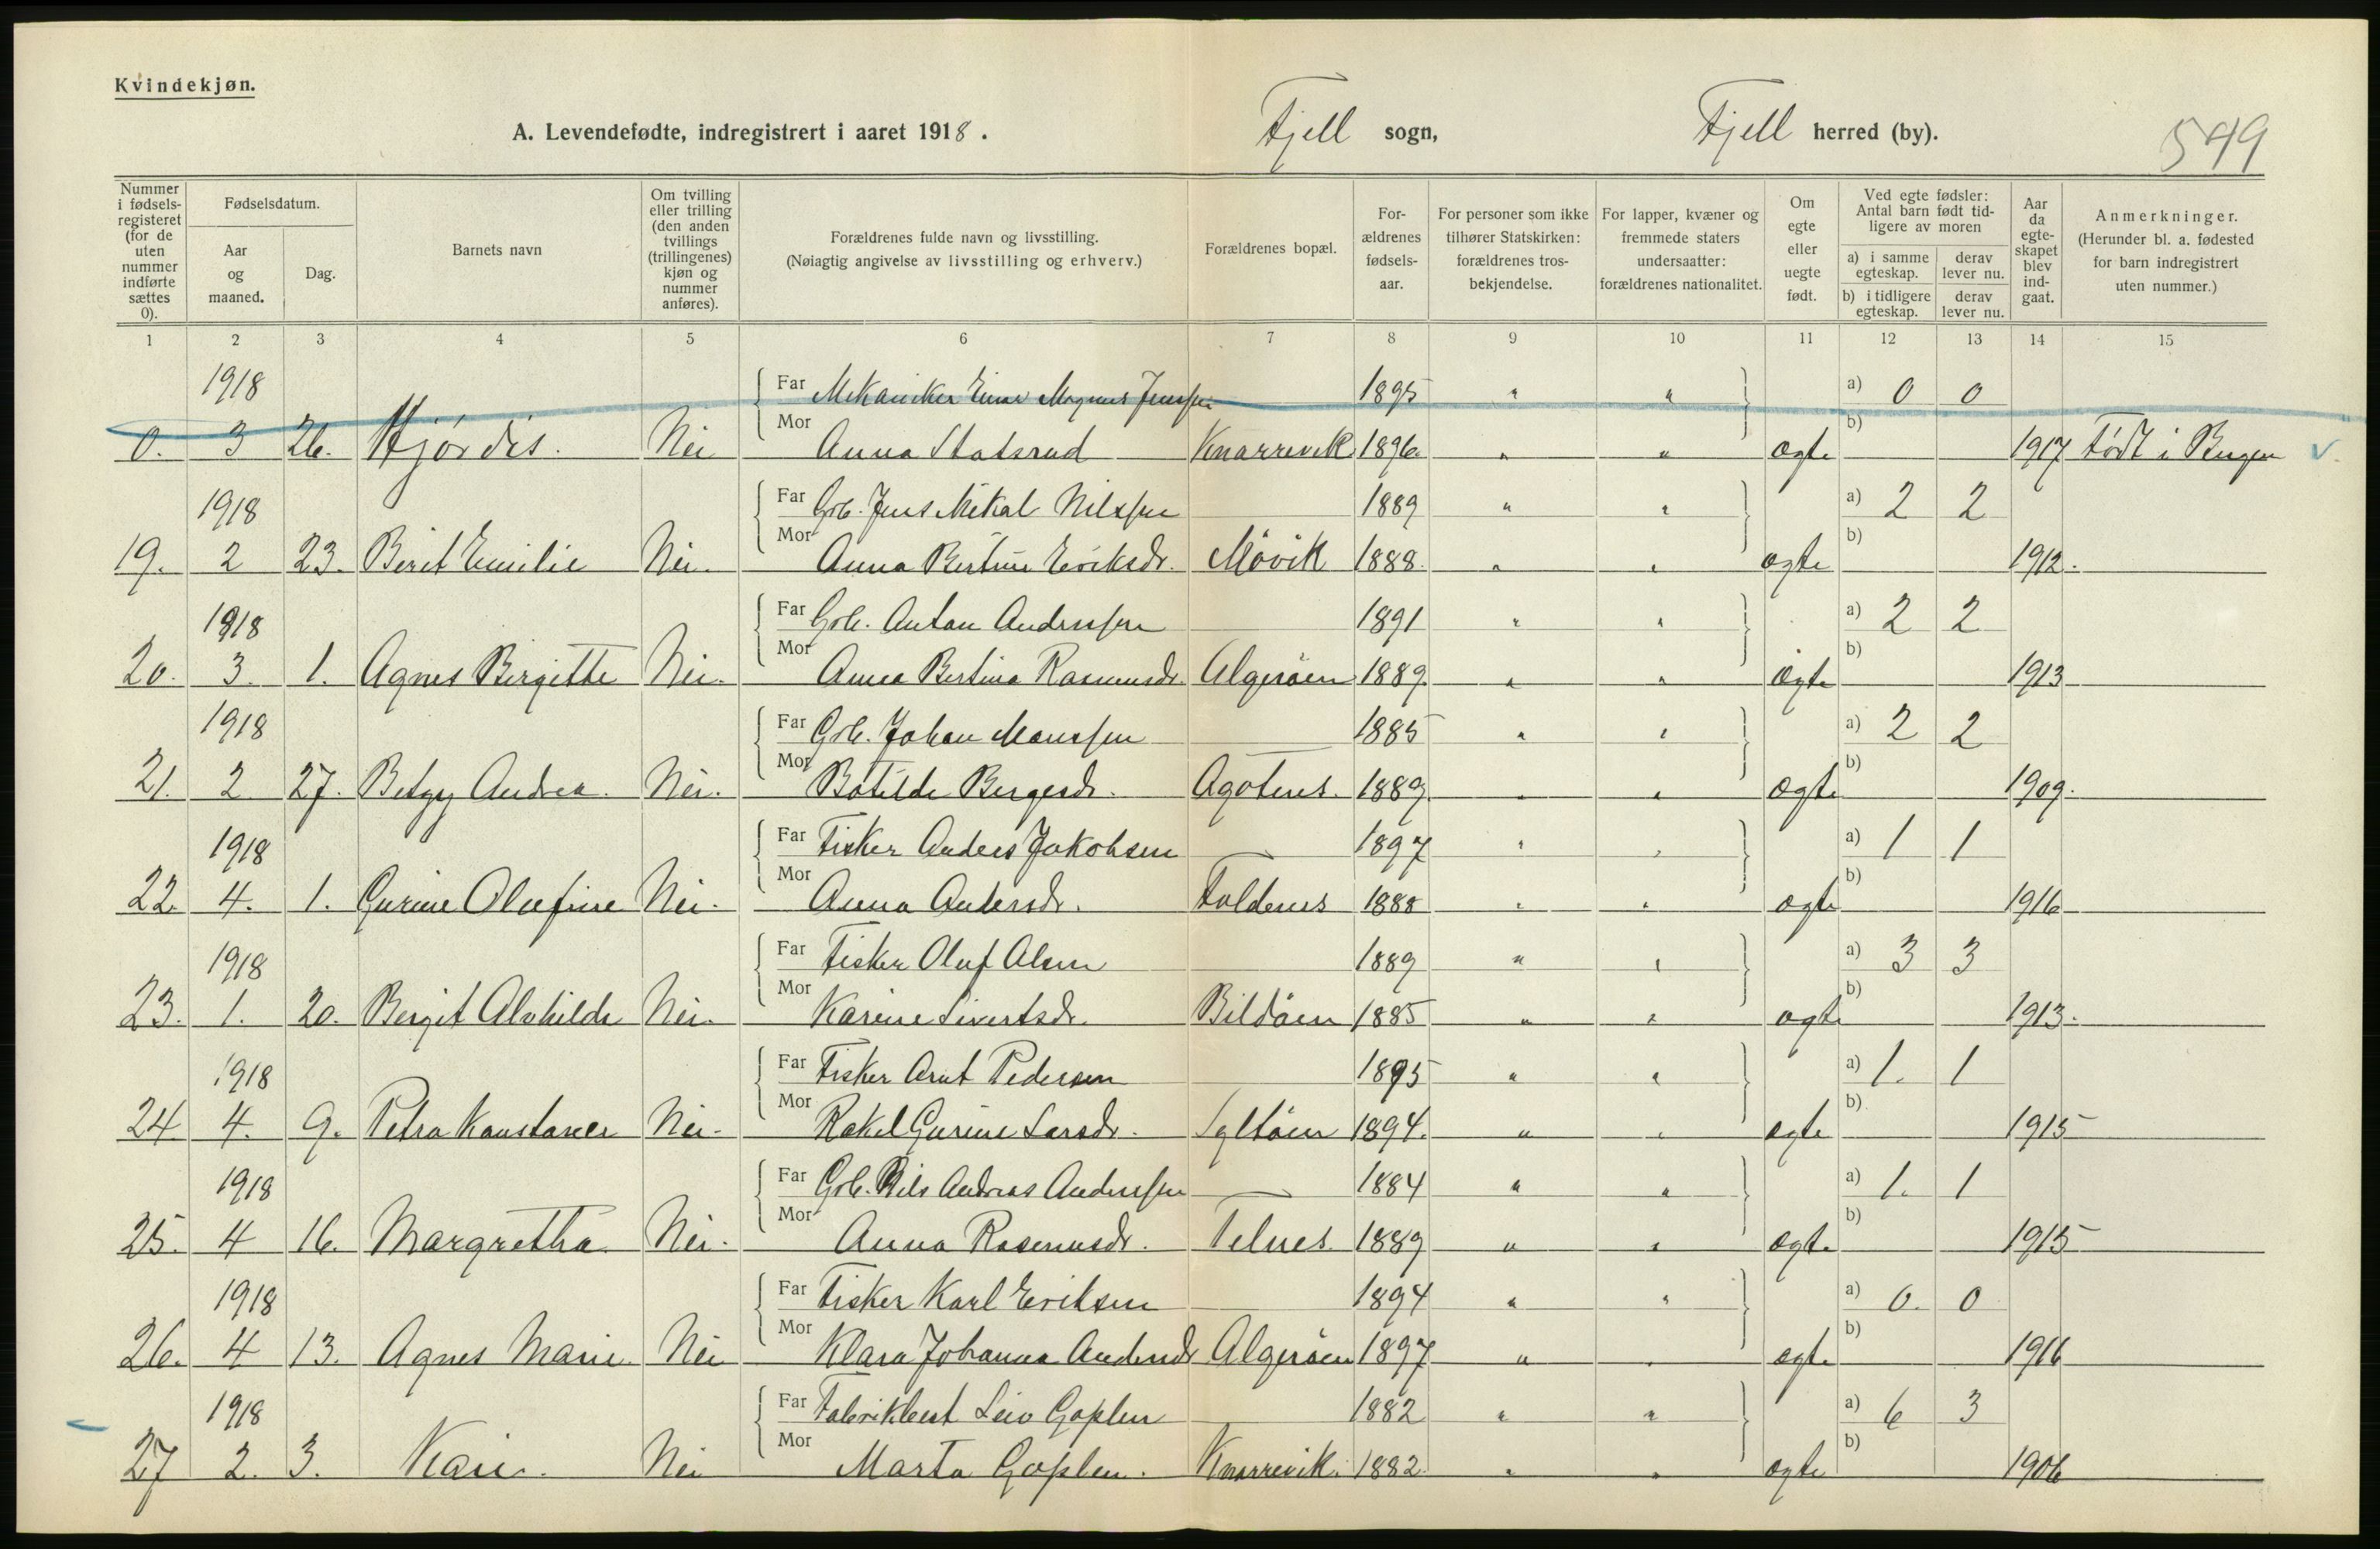 Kvindekjøn.
A. Levendefødte, indregistrert i aaret 1918. Fjell sogn, Fjell herred (by). 549
Nummer i fødselsregisteret (for de uten nummer indførte sættes 0).
Fødselsdatum.
Aar og maaned.
Dag.
Barnets navn
Om tvilling eller trilling (den anden tvillings (trillingenes) kjøn og nummer anføres).
Forældrenes fulde navn og livsstilling.
(Nøiagtig angivelse av livsstilling og erhverv.)
Forældrenes bopæl.
Forældrenes fødselsaar.
For personer som ikke tilhører Statskirken: forældrenes trosbekjendelse.
For lapper, kvæner og fremmede staters undersaatter: forældrenes nationalitet.
Om egte eller uegte født.
Ved egte fødsler: Antal barn født tidligere av moren
a) i samme egteskap. derav lever nu.
b) i tidligere egteskap. derav lever nu.
Aar da egteskapet blev indgaat.
Anmerkninger.
(Herunder bl. a. fødested for barn indregistrert uten nummer.)
1 2 3 4 5 6 7 8 9 10 11 12 13 14 15
1918 Far Mekaniker Einar Magnus Jenssen 1895 " " a) 0 0
0. 3 26. Hjørdis. Nei Mor Anna Statsrud Knarrevik 1896. " " ægte b) 1917 Født i Bergen v.
1918 Far Grb. Jens Mikal Nilssen 1889 " " a) 2 2
19. 2 23. Berit Emilie Nei. Mor Anna Bertine Eriksdr. Møvik 1888. " " ægte b) 1912.
1918 Far Grb. Anton Anderssen 1891 " " a) 2 2
20. 3. 1. Agnes Birgitte Nei. Mor Anna Bertina Rasmusdr. Algerøen 1889. " " Ægte b) 1913
1918 Far Grb. Johan Monssen 1885 " " a) 2 2
21. 2 27. Betzy Andrea. Nei. Mor Botilde Bergesdr. Agotnes. 1889. " " Ægte b) 1909.
1918 Far Fisker Anders Jakobsen 1897 " " a) 1 1
22. 4. 1. Gurine Olufine Nei. Mor Anna Andersdr. Foldenes 1888 " " ægte b) 1916
1918 Far Fisker Oluf Olsen 1889 " " a) 3 3
23. 1. 20. Bergit Alvhilde Nei. Mor Karine Sivertsdr. Bildøen 1885 " " ægte b) 1913.
1918 Far Fisker Arnt Pedersen 1895 " " a) 1. 1
24. 4. 9. Petra Konstanse Nei. Mor Rakel Gurine Larsdr. Syltøen 1894. " " ægte b) 1915
1918 Far Grb. Nils Andreas Anderssen 1884 " " a) 1. 1
25. 4 16. Margretha Nei. Mor Anna Rasmusdr. Telnes 1889 " " ægte. b) 1915
1918 Far Fisker Karl Eriksen 1894 " " a) 0. 0
26. 4 13. Agnes Marie. Nei Mor Klara Johanna Andersdr Algerøen 1897 " " ægte. b) 1916
1918 Far Leiv Goplen 1882 " " a) 6 3
27 2. 3. Kari. Nei Mor Marta Goplen. Knarrevik. 1882. " " ægte b) 1906